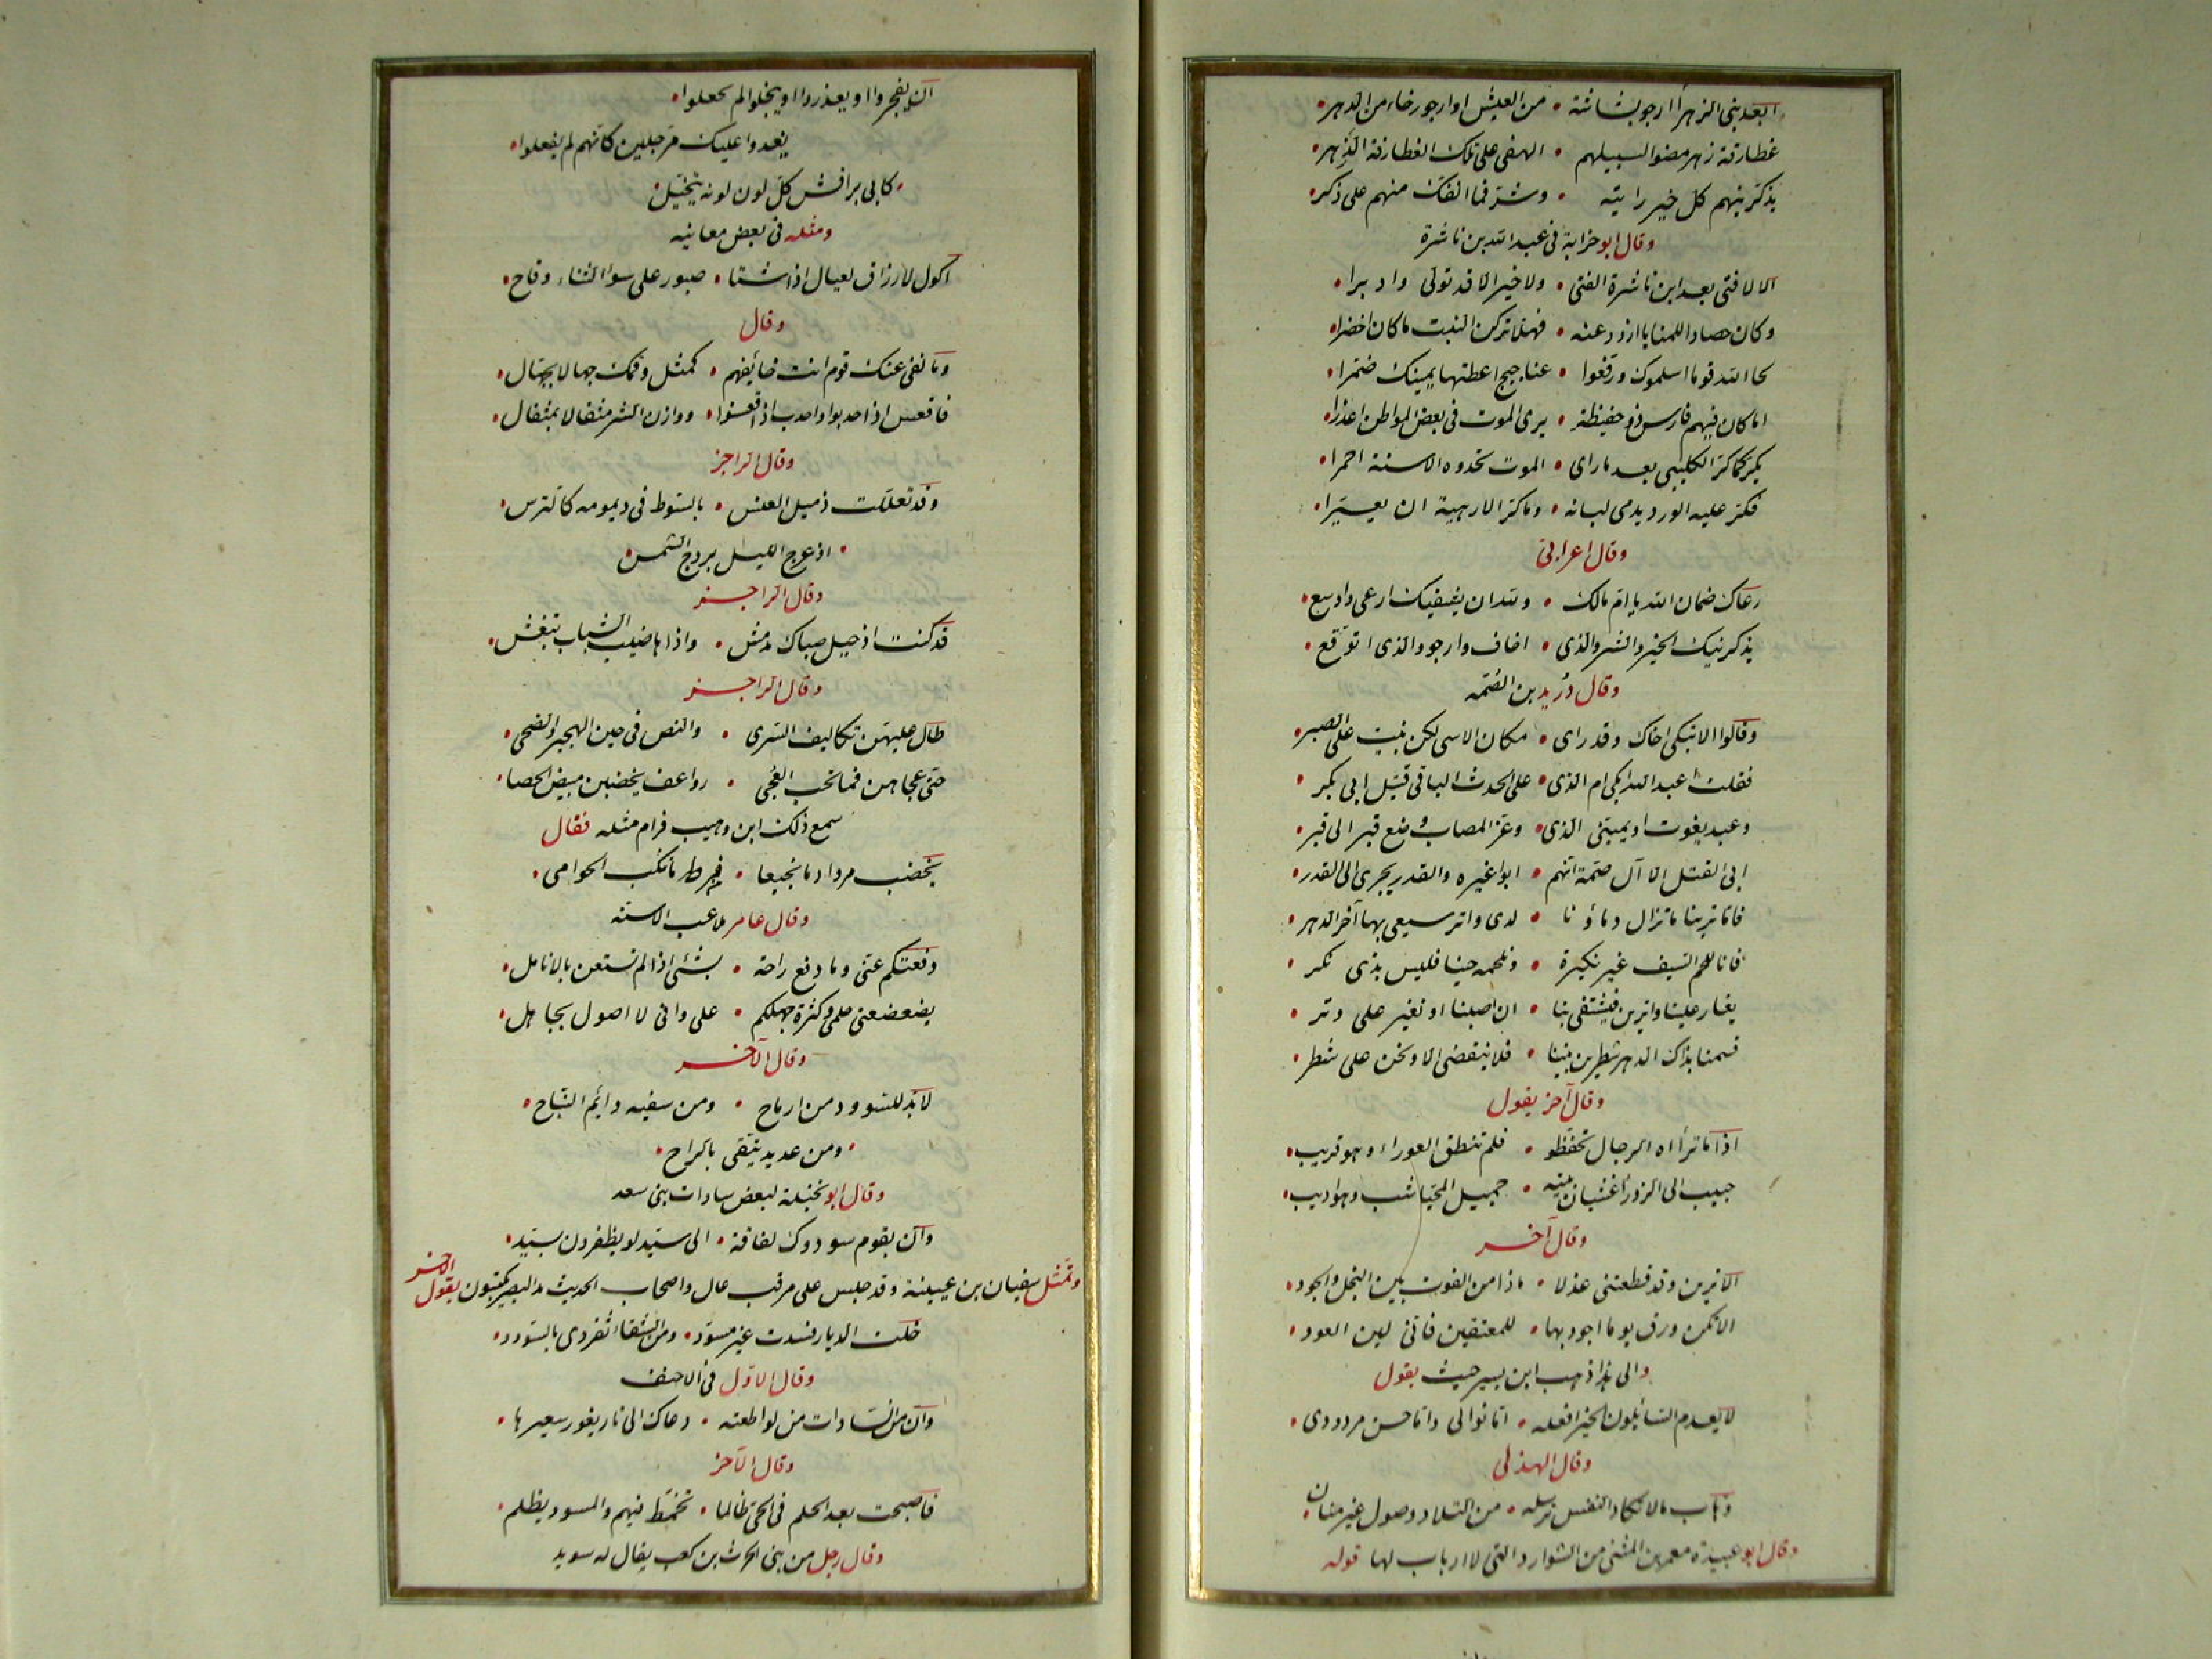 ابعد بنى الزهرا ارجو بشاشة • من العيش او ارجو رخاء من الدهر •
غطارفة زهر مضوا لسبيلهم • الهفى على تلك الغطارفة الزهر •
يذكرنيهم كل خير رايته • وشر فما انفك منهم على ذكر •
وقال ابو حزابة فى عبد الله بن ناشرة
الا لا فتى بعد ابن ناشرة الفتى • ولا خير الا قد تولى وادبرا •
وكان حصادا للمنايا ازدرعنه • فهلا تركن النبت ما كان اخضرا •
لحا الله قوما اسلموك ورفعوا • عناجيج اعطتها يمينك ضمرا •
اما كان فيهم فارس ذو حفيظة • يرى الموت فى بعض المواطن اعذرا •
يكر كما كر الكليبى بعد ما راى • الموت تحدوه الاسنة احمرا •
فكر عليه الورد يدمى لبانه • وما كر الا رهبة ان يعيرا •
وقال اعرابى
رعاك ضمان الله يا ام مالك • ولله ان يشفيك ارعى واوسع •
يذكرنيك الخير والشر والذى • اخاف وارجو والذى اتوقع •
وقال دريد بن الصمه
وقالوا الا تبكى اخاك وقد راى • مكان الاسى لكن بنيت على الصبر •
فقلت اعبد الله ابكى ام الذى • على الجدث الباقى قتيل ابى بكر •
وعبد يغوث او يميتنى الذى • وعز المصاب وضع قبر الى قبر •
ابى القتل الا آل صمة انهم • ابوا غيره والقدر يجرى الى القدر •
فاما ترينا ما تزال دماؤنا • لدى واتر سيعى بها آخر الدهر •
فانا للحم السيف غير نكيرة • ونلحمه حينا فليس بذى نكر •
يغار علينا واترين فيشتفى بنا • ان اصبنا او نغير على وتر •
قسمنا بذاك الدهر شطرين بيننا • فلا ينقضى الا ونحن على شطر •
وقال آخر يقول
اذا ما تراآه الرجال تحفظوا • فلم تنطق العوراء وهو قريب •
حبيب الى الزوار غشيان بيته • جميل المحيا شب وهو اديب •
وقال آخر
الا ترين وقد قطعتنى عذلا • ماذا من الفوت بين البخل والجود •
الا يكن ورق يوما اجود بها • للمعتفين فانى لين العود •
والى هذا ذهب ابن يسير حيث يقول
لا يعدم السائلون الخير افعله • اما نوالى واما حسن مردودى •
وقال الهذلى
وهاب ما لا تكاد النفس ترسله • من التلاد وصول غير منان •
وقال ابو عبيدة معمر بن المثنى من الشوارد التى لا ارباب لها قوله
ان يفجروا او يغدروا او يبخلوا لم يحفلوا •
يغدوا عليك مرجلين كانهم لم يفعلوا •
• كابى براقش كل لون لونه يتخيل •
ومثله فى بعض معانيه
اكول لارزاق لعيال اذا شتا • صبور على سوء الثناء وقاح •
وقال
وما نفى عنك قوم انت خائفهم • كمثل وقمك جهالا بجهال •
فاقعس اذا حدبوا واحدب اذا قعسوا • ووازن الشر مثقالا بمثقال •
وقال الراجز
وقد تعللت ذميل العنس • بالسوط فى ديمومه كالترس •
• اذ عرج الليل بروج الشمس •
وقال الراجز
قد كنت اذ حبل صباك مدمش • واذا هاضيب الشباب تبغش •
وقال الراجز
طال عليهن تكاليف السرى • والنص فى حين الهجير والضحى •
حتى عجاهن فما تحت العجى • رواعف يخضبن مبيض الحصا •
سمع ذلك ابن وهيب فرام مثله فقال
تخضب مروا دما نجيعا • من فرط ما تنكب الحوامى •
وقال عامر ملاعب الاسنه
دفعتكم عنى وما دفع راحة • بشئ اذا لم تستعن بالانامل •
يضعضعنى حلمى وكثرة جهلكم • على وانى لا اصول بجاهل •
وقال الآخر
لا بد للسوود من ارماح • ومن سفيه دايم النباح •
• ومن عديد يتقى بالراح •
وقال ابو نخيلة لبعض سادات بنى سعد
وان بقوم سودوك لفاقة • الى سيد لو يظفرون بسيد •
وتمثل سفيان بن عيينة وقد جلس على مرقب عال واصحاب الحديث مد البصر يكتبون يقول الآخر
خلت الديار فسدت غير مسود • ومن الشقاء تفردى بالسودد •
وقال الاول فى الاحنف
وان من السادات من لو اطعته • دعاك الى نار يفور سعيرها •
وقال الآخر
فاصبحت بعد الحلم فى الحى ظالما • تخمط فيهم والمسود يظلم •
وقال رجل من بنى الحرث بن كعب يقال له سويد